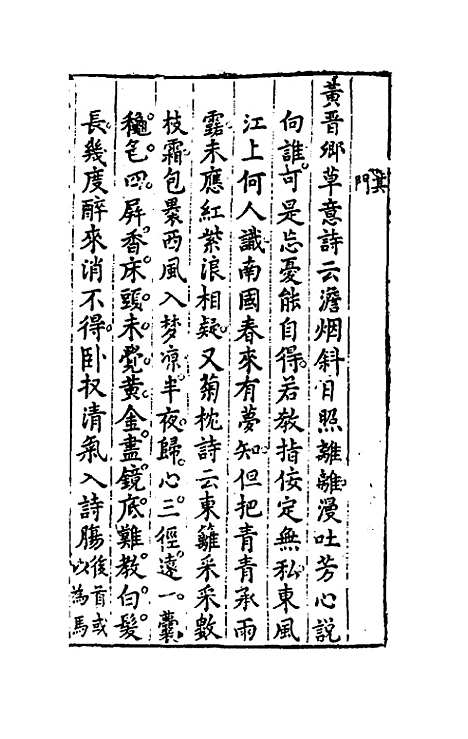 黃晋卿草意詩云澹烟斜日照離離漫吐芳心說
向誰可是忘憂能自得若教指佞定無私東風
江上何人讖南國春來有夢知但把青青承雨
露未應紅紫浪相疑又菊枕詩云東籬采采數
枝霜包裹西風入梦凉半夜歸心三徑遠一囊
穐色四屏香床頭未覺黃金盡鏡底難教白髮
長幾度醉來消不得卧収清氣入詩腸後首或
以為馬